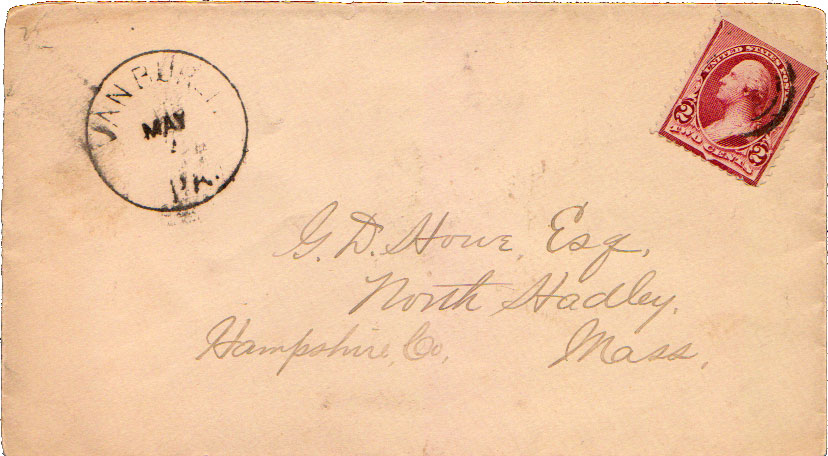 MAY
UNITED STATES POSTAGE
2 2
TWO CENTS
G. D. Howe, Esq.
North Hadley,
Hampshire, Co, Mass.